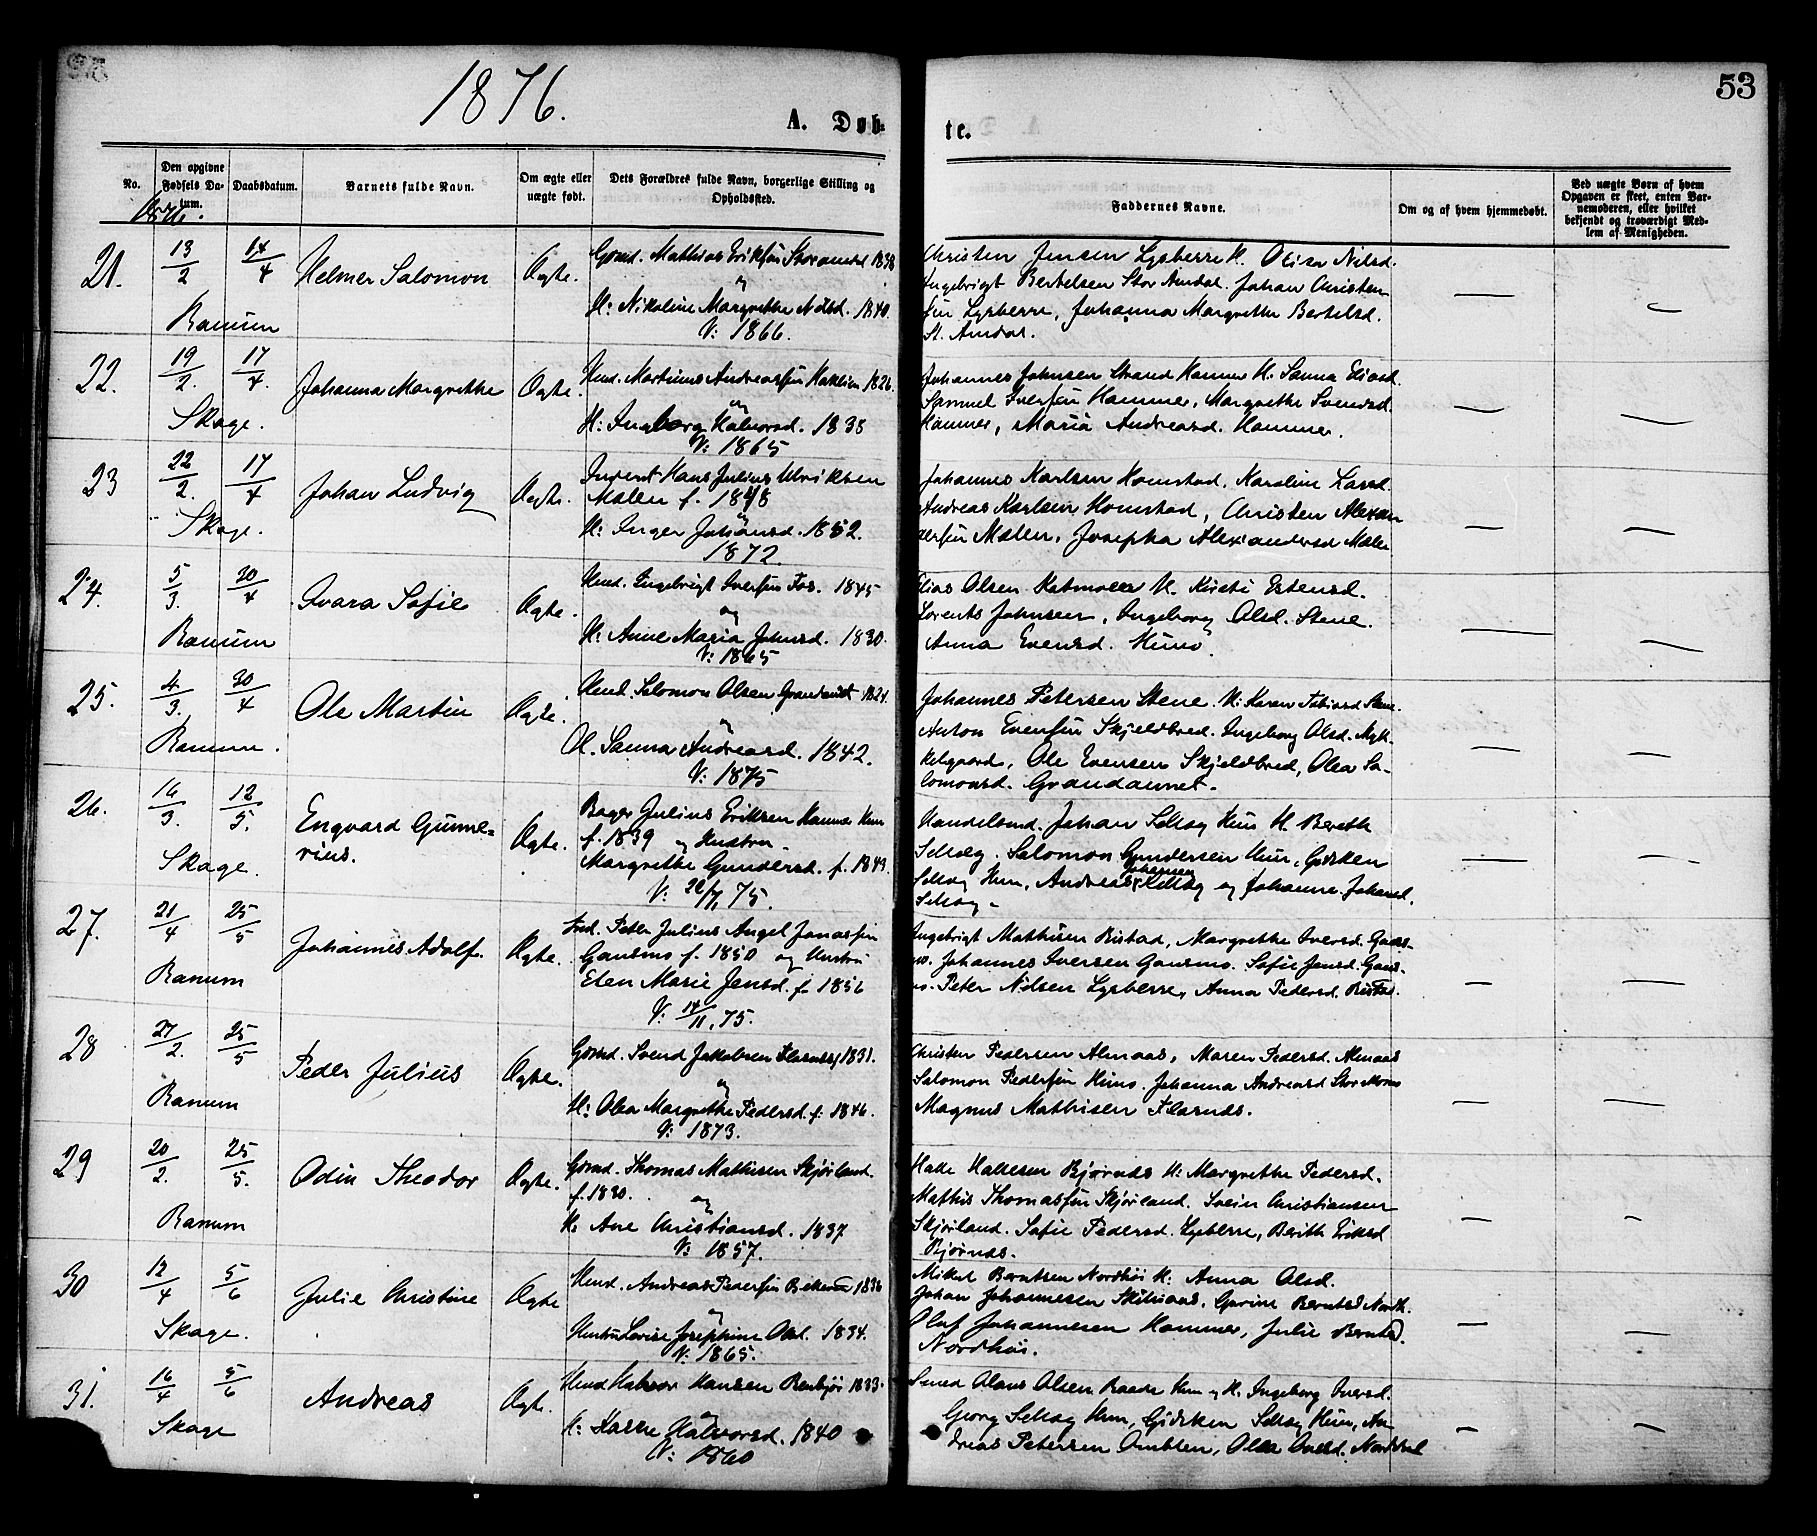 1876.
53
A. Døb-
te.
No.
Den opgivne Fødsels Datum.
Daabsdatum.
Barnets fulde Navn.
Om ægte eller uægte født.
Dets Forældres fulde Navn, borgerlige Stilling og Opholdssted.
Faddernes Navne.
Om og af hvem hjemmedøbt.
Ved uægte Børn af hvem Opgaven er skeet, enten Barnemoderen, eller hvilket bekjendt og troværdigt Medlem af Menigheden.
1876.
21. 13/2 14/4 Helmer Salomon Ægte. Gbmd. Mathias Eriksen 1838
og
H: Nikoline Margrethe Nilsd. 1840.
V: 1866.
Ranum
Christen Jensen Lysberre H. Olisa Nilsd.
Ingebrigt Bertelsen Stor Amdal. Johan Christen
sen Lysberre, Johanna Margrethe Bertelsd.
St. Amdal.
22. 19/2. 17/4. Johanna Margrethe Ægte. Hmd. Martinus Andreassen 1826.
og
H: Ingeborg Halvorsd. 1838
V: 1865
Skage.
Johannes Johnsen Strand Hammer H. Sanna
Samuel Iversen Hammer, Margrethe Svendsd.
Hammer, Maria Andreasd. Hammer.
23 22/2. 17/4 Johan Ludvig Ægte. Hans Julius Ulriksen
Mælen f. 1848
og
H: Inger Johansd. 1852.
1872.
Skage.
Johannes Karlsen Homstad, Karoline Larsd.
Andreas Karlsen Homstad, Christen Alexan
dersen Mælen, Josepha Alexandersd Mælen
24. 5/3. 30/4 Ivara Sofie Ægte. Hmd. Ingebrigt Iversen Fos. 1845
og
H: Anne Maria Johnsd. 1830.
V: 1865
Ranum
Elias Olsen H. Kirsti Estensd.
Lorents Johnsen, Ingeborg Olsd. Stene.
Anna Evensd. Hunn.
25. 4/3. 30/4 Ole Martin Ægte. Salomon Olsen 1821.
og
Sanna Andreasd. 1842.
V: 1875
Ranum.
Johannes Petersen Stene. H: Karen Tobiasd Stene.
Anton Evensen Skjeldbred. Ingeborg Olsd. Myk-
kelgaard, Ole Evensen Skjeldbred, Olea Sa-
lomonsd. Grandaunet.
26. 16/3. 12/5. Engvard Gune-
rius. Ægte. Bager Julius Eriksen Hammer Hun
f. 1839 og Hustru
Margrethe Gundersd. f. 1843.
V: 22/1 75.
Skage.
Handelsmd. Johan Selkog Hun H. Bereth
Selkog. Salomon Gundersen Hun, Gidsken
Selkog Hun, Andreas Johannes Selkog og Johanne Johansd.
Selkog.
27. 21/4 25/5 Johannes Adolf. Ægte. Peter Julius Angel Jonassen
Gansmo f. 1850 og Hustru
Elen Marie Jensd. f. 1856
V: 14/11. 75.
Ranum
Ingebrigt Mathisen Rustad, Margrethe Iversd. Gans-
mo. Johannes Iversen Gansmo. Sofie Jensd. Gans-
mo. Peter Nilsen Lysberre, Anna Pedersd. Rustad.
28 27/2. 25/5 Peder Julius Ægte. Gbmd. Svend Jakobsen Flasnes 1831.
og
H: Olea Margrethe Pedersd. f. 1846.
V: 1873.
Ranum
Christen Pedersen Almaas, Maren Pedersd. Almaas
Salomon Pedersen Hunn. Johanna Andreasd
Magnus Mathisen Flasnes.
29 20/2. 25/5. Odin Theodor Ægte. Gbmd. Thomas Mathisen Skjørland.
f. 1830. og
H. Ane Christiansd. 1837
V: 1857.
Ranum
Halle Hallesen Bjørnes H: Margrethe Pedersd.
Mathis Thomassen Skjørland. Svein Christiansen
Skjørland. Sofie Pedersd. Lysberre, Berith Eriksd
Bjørnes.
30 12/4 5/6 Julie Christine Ægte Hmd. Andreas Pedersen 1836
og
Hustru Lovise Josephine Olsd. 1834.
V: 1865.
Skage.
Mikal Berntsen Nordhøi H: Anna Olsd.
Johan Johannesen, Gurine Berntsd Nordh.
Oluf Johannesen Hammer, Julie Berntsd.
Nordhøi.
31. 16/4 5/6 Andreas Ægte. Hmd Halvor Hansen 1833.
og
H: Karen Halvorsd. 1840
V: 1860
Skage
Smed Olaus Olsen Hun og H. Ingeborg Iversd.
Georg Selkog Hun, Gidsken Selkog Hun, An-
dreas Petersen, Olea Ovesd.